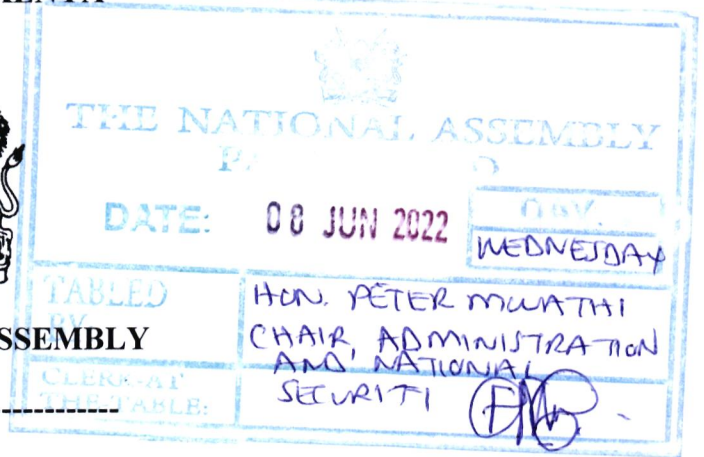 THE NATIONAL ASSEMBLY
DATE: 08 JUN 2022
DAY.
WEDNESDAY
TABLED
BY
HON. PETER MWATHI
CHAIR, ADMINISTRATION
AND NATIONAL
SECURITI
SSEMBLY
CLERK-AT
THE-TABLE: